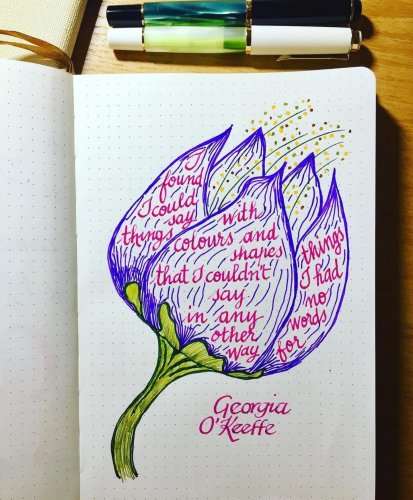 I
found
I could
say
things
with
colours and
shapes
that I couldn't
say
in any
other
way
things
I had
no
words
for
Georgia
O'Keeffe